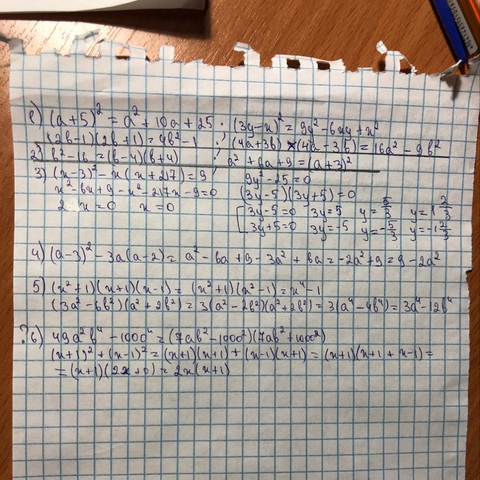 1) (a+5)² = a² + 10a + 25 . (3y-x)² = 9y² - 6xy + x²
(2b-1)(2b+1) = 4b² - 1 (4a+3b) (4a-3b) = 16a² - 9b²
2) b² - 16 = (b-4)(b+4) a² + 6a + 9 = (a+3)²
3) (x-3)² - x(x+217) = 9 9y² - 25 = 0
x² - 6x + 9 - x² - 217x - 9 = 0 (3y-5)(3y+5) = 0
x = 0 x = 0 3y-5 = 0 3y = 5 y = 5/3 y = 1 2/3
3y+5 = 0 3y = -5 y = -5/3 y = -1 2/3
4) (a-3)² - 3a(a-2) = a² - 6a + 9 - 3a² + 6a = -2a² + 9 = 9 - 2a²
5) (x²+1)(x+1)(x-1) = (x²+1)(x²-1) = x⁴ - 1
(3a² - 6b²)(a² + 2b²) = 3(a² - 2b²)(a² + 2b²) = 3(a⁴ - 4b⁴) = 3a⁴ - 12b⁴
?6) 49a²b⁴ - 100c⁴ = (7ab² - 10c²)(7ab² + 10c²)
(x+1)² + (x-1)² = (x+1)(x+1) + (x-1)(x+1) = (x+1)(x+1+x-1) =
= (x+1)(2x+0) = 2x(x+1)